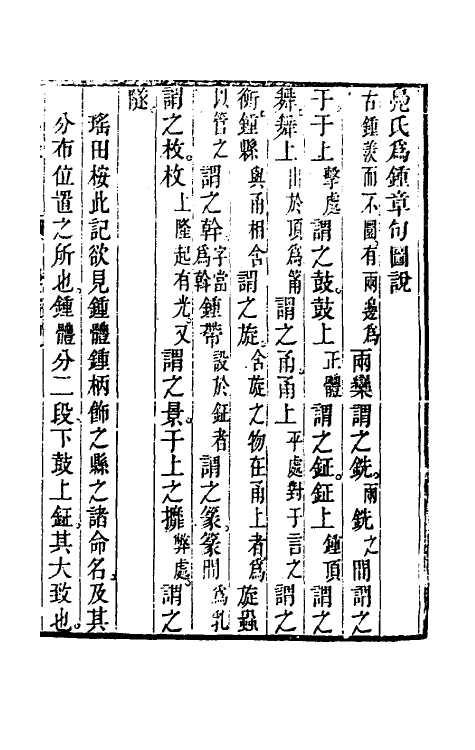 鳧氏爲鍾章句圖說
古鍾羨而不圜有兩邊爲兩欒謂之銑兩銑之間謂之
于于上擊處謂之鼓鼓上正體謂之鉦鉦上鍾頂謂之
舞舞上出於頂爲甬謂之甬甬上平處對于言之謂之
衡鍾縣與甬相含謂之旋含旋之物在甬上者爲旋蟲
以管之謂之幹字當爲斡鍾帶設於鉦者謂之篆篆間爲乳
謂之枚枚上隆起有光又謂之景于上之攠弊處謂之
隧
瑤田桉此記欲見鍾體鍾柄飾之縣之諸命名及其
分布位置之所也鍾體分二段下鼓上鉦其大致也